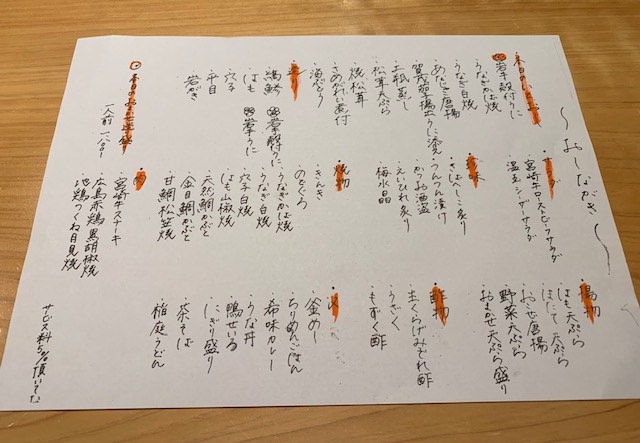 〜おしながき〜
・本日のおすすめ
岩手 殻付うに
・うなぎかば焼
・うなぎ白焼
・あなご唐揚
・賀茂茄子揚出しうに添え
・土瓶蒸し
・松茸天ぷら
・焼松茸
・さめがれい煮付
・海ぶどう
・造り
・縞鯵
・はも
・穴子
・平目
・岩がき
岩手 殻付うに
岩手うに
本日のおまかせ造り盛
一人前
・サラダ
・宮崎牛ローストビーフサラダ
・温玉シーザーサラダ
・冷菜
・さばへしこ炙り
・つんつん漬け
・かつお酒盗
・えいひれ炙り
・梅水晶
・焼物
・きんき
・のどくろ
・うなぎかば焼
・うなぎ白焼
・穴子白焼
・はも山椒焼
・天然鯛かぶと
・金目鯛かぶと
・甘鯛松笠焼
・肉
・宮崎牛ステーキ
・広島赤鶏黒胡椒焼
・地鶏つくね月見焼
・揚物
・はも天ぷら
・ほたて天ぷら
・やさい唐揚
・野菜天ぷら
・おまかせ天ぷら盛り
・酢物
・生くらげみぞれ酢
・うざく
・もずく酢
・〆
・釜めし
・ちりめんごはん
・希味カレー
・うな丼
・鴨せいろ
・にぎり盛り
・茶そば
・稲庭うどん
サービス料5%頂いてます